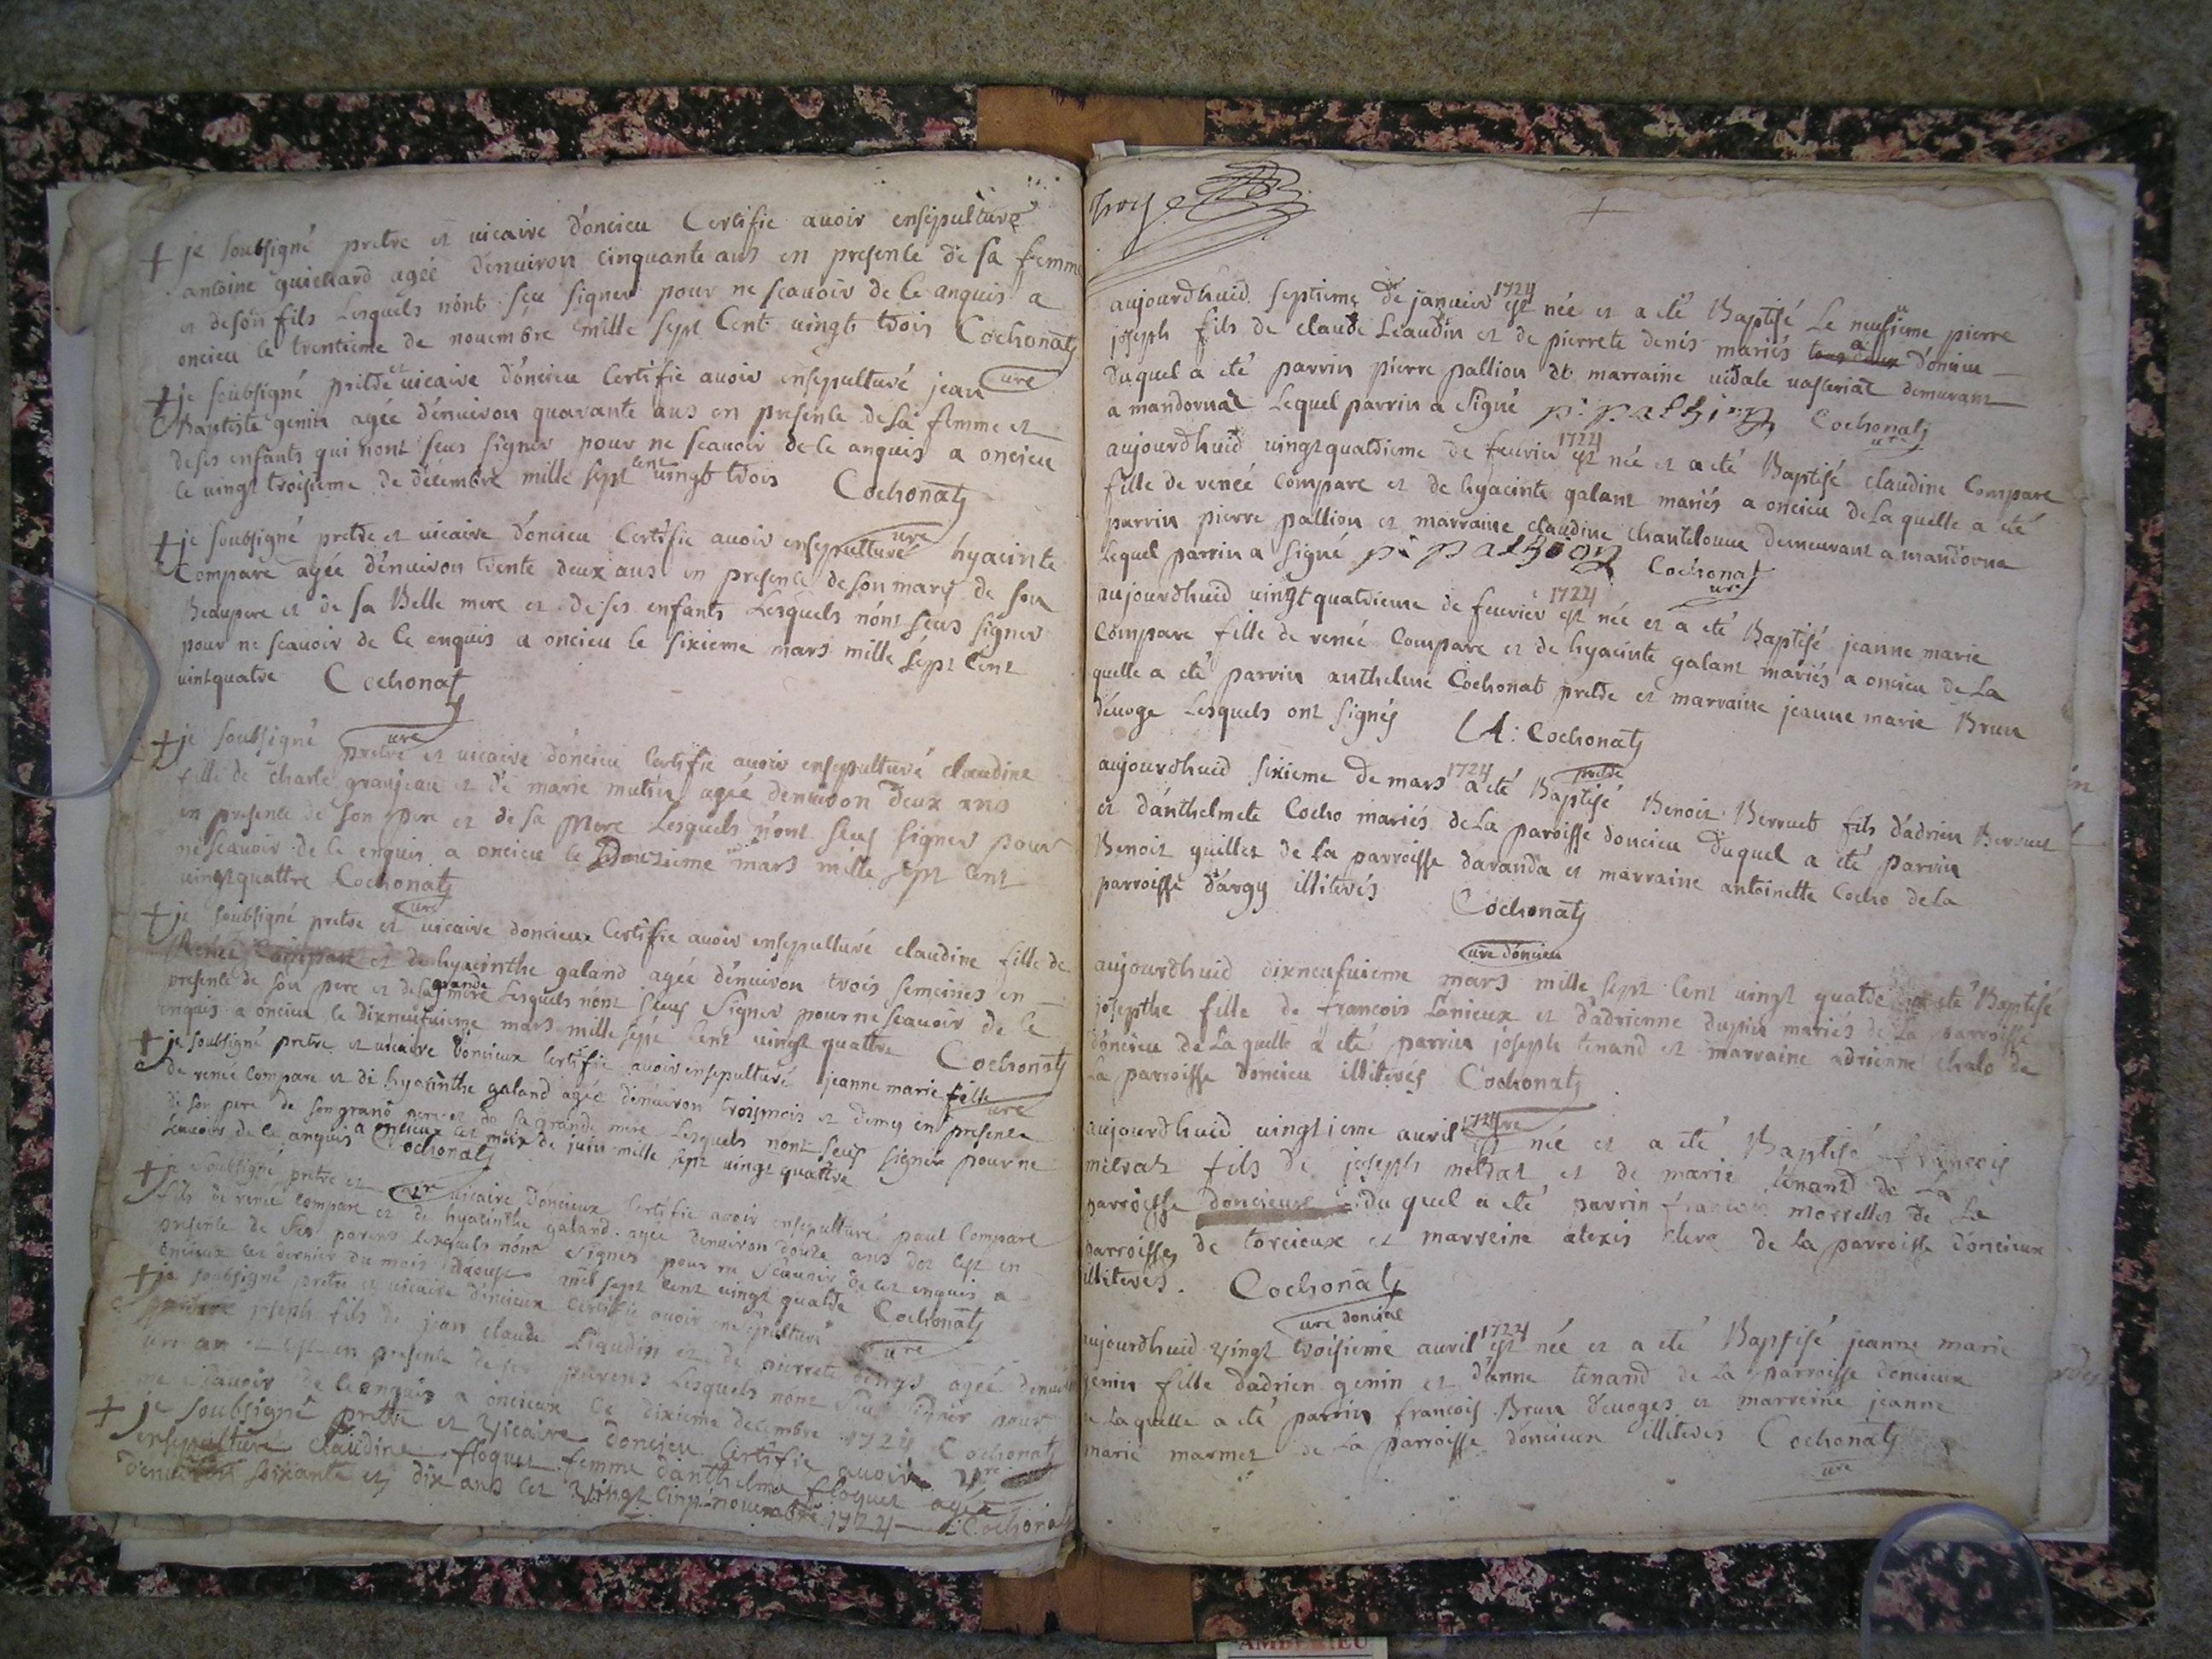 + je soubsigné pretre et vicaire d'oncieu Certifie avoir ensepulturé
antoine guichard agée d'environ cinquante ans en presente de sa femme
et de son fils Lesquels n'ont sçu signer pour ne scavoir de ce anquis a
oncieu le trentieme de novembre mille sept Cent vingt trois Cochonat
ure
+ je soubsigné pretre et vicaire d'oncieu Certifie avoir ensepulturé jean
Baptiste genin agée d'environ quarante ans en presente de sa femme et
de ses enfants qui n'ont sceus signer pour ne scavoir de ce anquis a oncieu
le vingt troisieme de décembre mille sept cent vingt trois Cochonat
ure
+ je soubsigné pretre et vicaire d'oncieu Certifie avoir ensepulturé hyacinte
Compare agée d'environ trente deux ans en presente de son mary de son
Beaupere et de sa Belle mere et de ses enfants Lesquels n'ont sceus signer
pour ne scavoir de ce enquis a oncieu le sixieme mars mille sept Cent
vintquatre Cochonat
ure
+ je soubsigné pretre et vicaire d'oncieu Certifie avoir ensepulturé claudine
fille de charle granjean et de marie mutin agée d'environ deux ans
en presente de son pere et de sa Mere Lesquels n'ont sceus signer pour
ne scavoir de ce enquis a oncieu le Douzieme mars mille sept Cent
vingtquattre Cochonat
ure
+ je soubsigné pretre et vicaire doncieux Certifie avoir ensepulturé claudine fille de
Renée Compare et de hyacinthe galand agée d'environ trois semeines en
presente de son pere et de sa grande mere Lesquels n'ont sceus signer pour ne scavoir de ce
enquis a oncieu le dixneufuieme mars mille sept Cent vingt quattre Cochonat
ure
+ je soubsigné pretre et vicaire doncieux Certifie avoir ensepulturé jeanne marie fille
de renée Compare et de hyacinthe galand agée d'environ trois mois et demy en presente
de son pere de son grand pere et de sa grande mere Lesquels n'ont sceus signer pour ne
scavoir de ce anquis a oncieux cet mois de juin mille sept vingt quattre
Cochonat
ure
+ je soubsigné pretre et vicaire doncieux Certifie avoir ensepulturé paul Compare
fils de renée Compare et de hyacinthe galand agée d'environ douze ans cet en
presente de ses parens Lesquels n'ont signer pour ne scavoir de ce enquis a
oncieux cet dernier du mois daoust mil sept Cent vingt quatre Cochonat
ure
+ je soubsigné pretre et vicaire doncieux Certifie avoir ensepulturé
joseph fils de jean claude Liaudin et de pierrete denys agée denviron
un an et en presente de ses parens Lesquels n'ont sceu signer pour
ne scavoir de ce enquis a oncieux ce dixieme decembre 1724 Cochonat
ure
+ je soubsigné pretre et vicaire doncieu Certifie avoir
ensepulturé claudine floquet femme danthelme floquet agée
denviron soixante et dix ans cet vingt cinq novembre 1724 Cochonat
+
aujourdhuid septieme de janvier 1724 est née et a eté Baptisé Le neufieme pierre
joseph fils de claude Léaudin et de pierrete denis mariés a d'oncieu
duquel a eté parrin pierre pallion et marraine vidale vasteriat demurant
a mandornat Lequel parrin a signé p: pallion Cochonat
ure
aujourdhuid vingtquatrieme de fevrier 1724 est née et a eté Baptisé claudine Compare
fille de renée Compare et de hyacinte galant mariés a oncieu de La quelle a eté
parrin pierre pallion et marraine claudine chantelouve demeurant a mandorna
Lequel parrin a signé p: pallion Cochonat
ure
aujourdhuid vingtquatrieme de fevrier 1724 est née et a eté Baptisé jeanne marie
Compare fille de renée Compare et de hyacinte galant mariés a oncieu de La
quelle a eté parrin anthelme Cochonat pretre et marraine jeanne marie Brun
d'evoge Lesquels ont signés A: Cochonat
pretre
aujourdhuid sixieme de mars 1724 a eté Baptisé Benoit Berruet fils d'adrien Berruet
et d'anthelmete Cocho mariés de La paroisse doncieu duquel a eté parrin
Benoit guillet de la parroisse daranda et marraine antoinette Cocho de La
parroisse d'argy illiterés Cochonat
ure d'oncieu
aujourdhuid dixneufuieme mars mille sept Cent vingt quatre a eté Baptisé
josepthe fille de francois Lanieux et d'adrienne dupin mariés de La parroisse
d'oncieu de La quelle a eté parrin joseph tenand et marraine adrienne chalo de
La parroisse d'oncieu illiterés Cochonat
ure
aujourdhuid vingtieme avril 1724 est née et a eté Baptisé francois
melrat fils de joseph melrat et de marie tenand de La
parroisse doncieux duquel a eté parrin francois morrellet de La
parroisse de torcieux et marreine alexis clerc de La parroisse d'oncieux
illiterés. Cochonat
ure doncieu
aujourdhuid vingt troisieme avril 1724 est née et a eté Baptisé jeanne marie
genin fille dadrien genin et danne tenand de La parroisse doncieux
de Laquelle a eté parrin francois Brun devoges et marreine jeanne
marie marmet de La parroisse d'oncieux illiterés Cochonat
ure
AMBERIEU